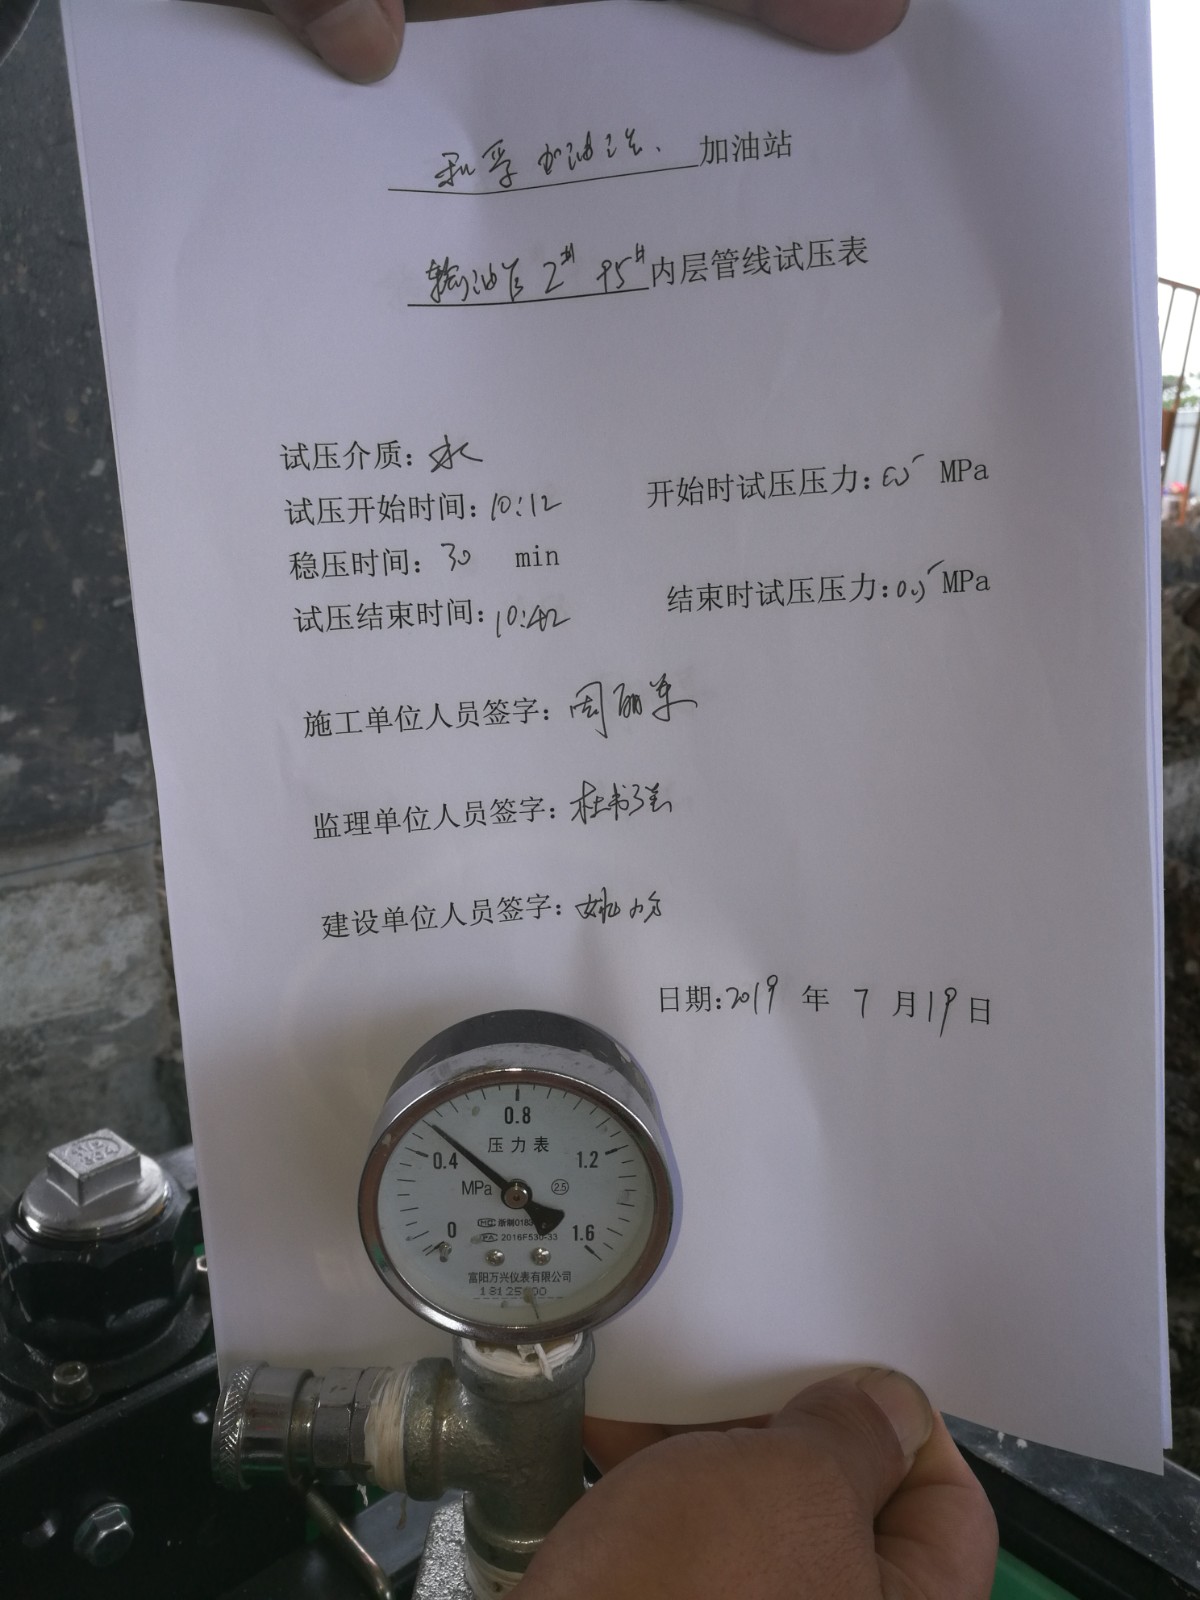 和孚加油站、加油站
输油管 2# 95#内层管线试压表
试压介质：水
试压开始时间：10:12 开始时试压压力：0.5 MPa
稳压时间：30 min
试压结束时间：10:42 结束时试压压力：0.5 MPa
施工单位人员签字：周丽军
监理单位人员签字：杜书强
建设单位人员签字：姚
日期：2019 年 7 月 19 日
0.8
压力表
0.4 1.2
MPa 2.5
0 1.6
浙制018
2016F530-33
富阳万兴仪表有限公司